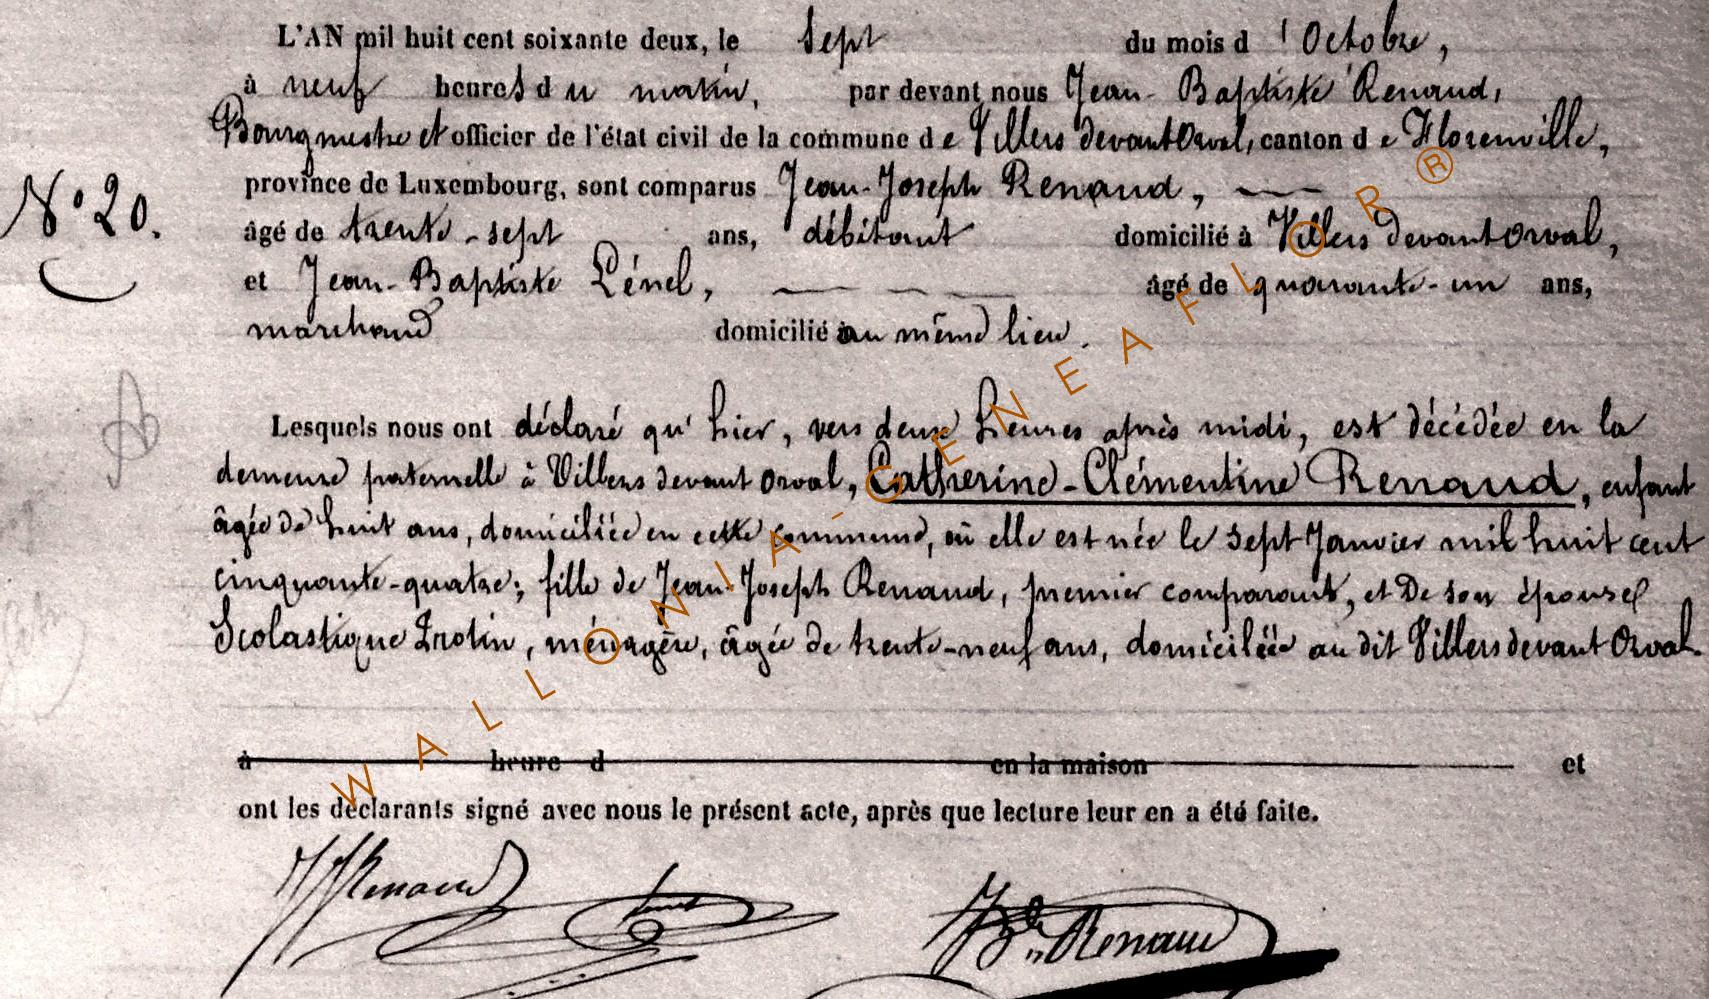 L'AN mil huit cent soixante deux, le sept du mois d'Octobre,
à neuf heures du matin, par devant nous Jean-Baptiste Renaud,
Bourgmestre et officier de l'état civil de la commune de Villers devant Orval, canton de Florenville,
province de Luxembourg, sont comparus Jean-Joseph Renaud,
N° 20.
âgé de trente-sept ans, débitant domicilié à Villers devant Orval,
et Jean-Baptiste Lénel, âgé de quarante-un ans,
marchand domicilié au même lieu.
Lesquels nous ont déclaré qu'hier, vers deux heures après midi, est décédée en la
demeure paternelle à Villers devant Orval, Catherine-Clémentine Renaud, enfant
âgée de huit ans, domiciliée en cette commune, où elle est née le sept Janvier mil huit cent
cinquante-quatre; fille de Jean-Joseph Renaud, premier comparant, et De son épouse
Scolastique Trotin, ménagère, âgée de trente-neuf ans, domiciliée au dit Villers devant Orval.
à heure d en la maison et
ont les déclarants signé avec nous le présent acte, après que lecture leur en a été faite.
JJRenaud JBte Renaud
WALLONIA - GENEAFLOR ®